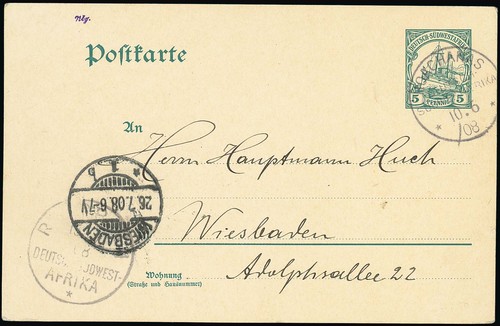 Nbg.
DEUTSCH-SÜDWESTAFRIKA
5 PFENNIG 5
Postkarte
10.6
/08
An
Herrn Hauptmann Huch
WIESBADEN
26.7.08.6-7V
* 1 b
Wiesbaden
DEUTSCH-SÜDWEST-
AFRIKA
Adolphsallee 22
Wohnung
(Straße und Hausnummer)